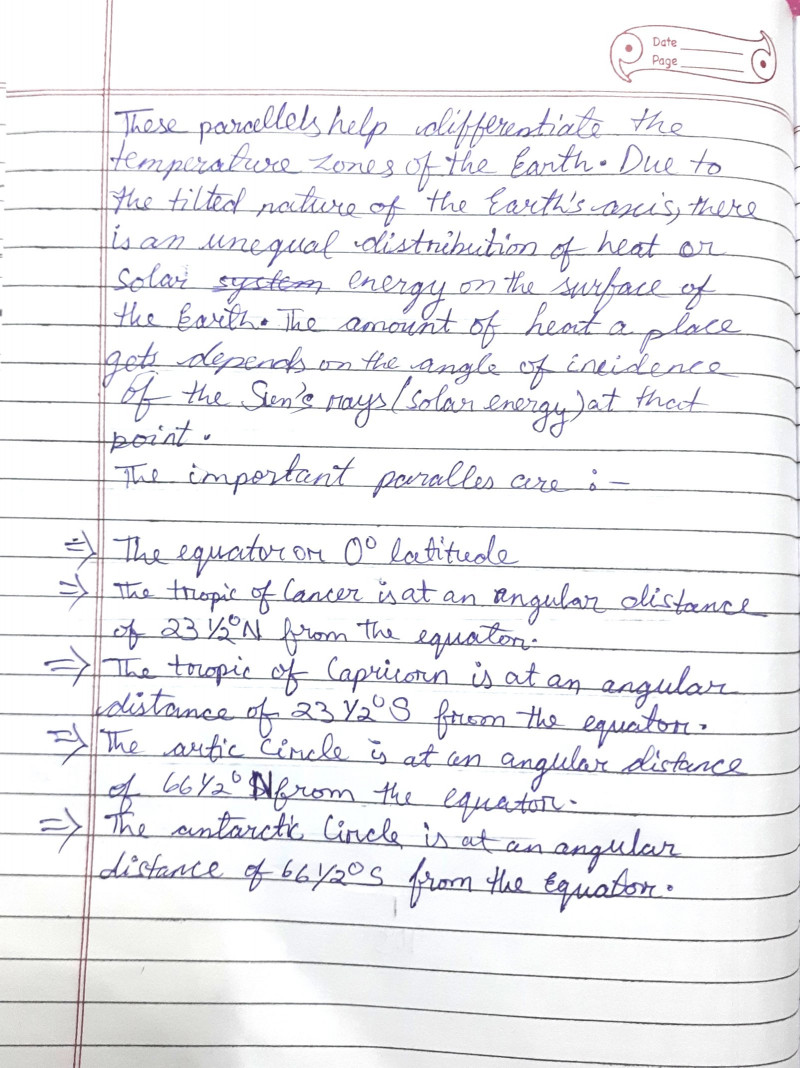 Date
Page
These parcellels help differentiate the
temperature zones of the Earth. Due to
the tilted nature of the Earth's axis, there
is an unequal distribution of heat or
solar system energy on the surface of
the Earth. The amount of heat a place
gets depends on the angle of incidence
of the Sun's rays (solar energy) at that
point.
The important paralles are :-
⇒ The equator or 0° latitude
⇒ The tropic of Cancer is at an angular distance
of 23 1/2° N from the equator.
⇒ The tropic of Capricorn is at an angular
distance of 23 1/2° S from the equator.
⇒ The artic Circle is at an angular distance
of 66 1/2° N from the equator.
⇒ The antarctic Circle is at an angular
distance of 66 1/2° S from the Equator.